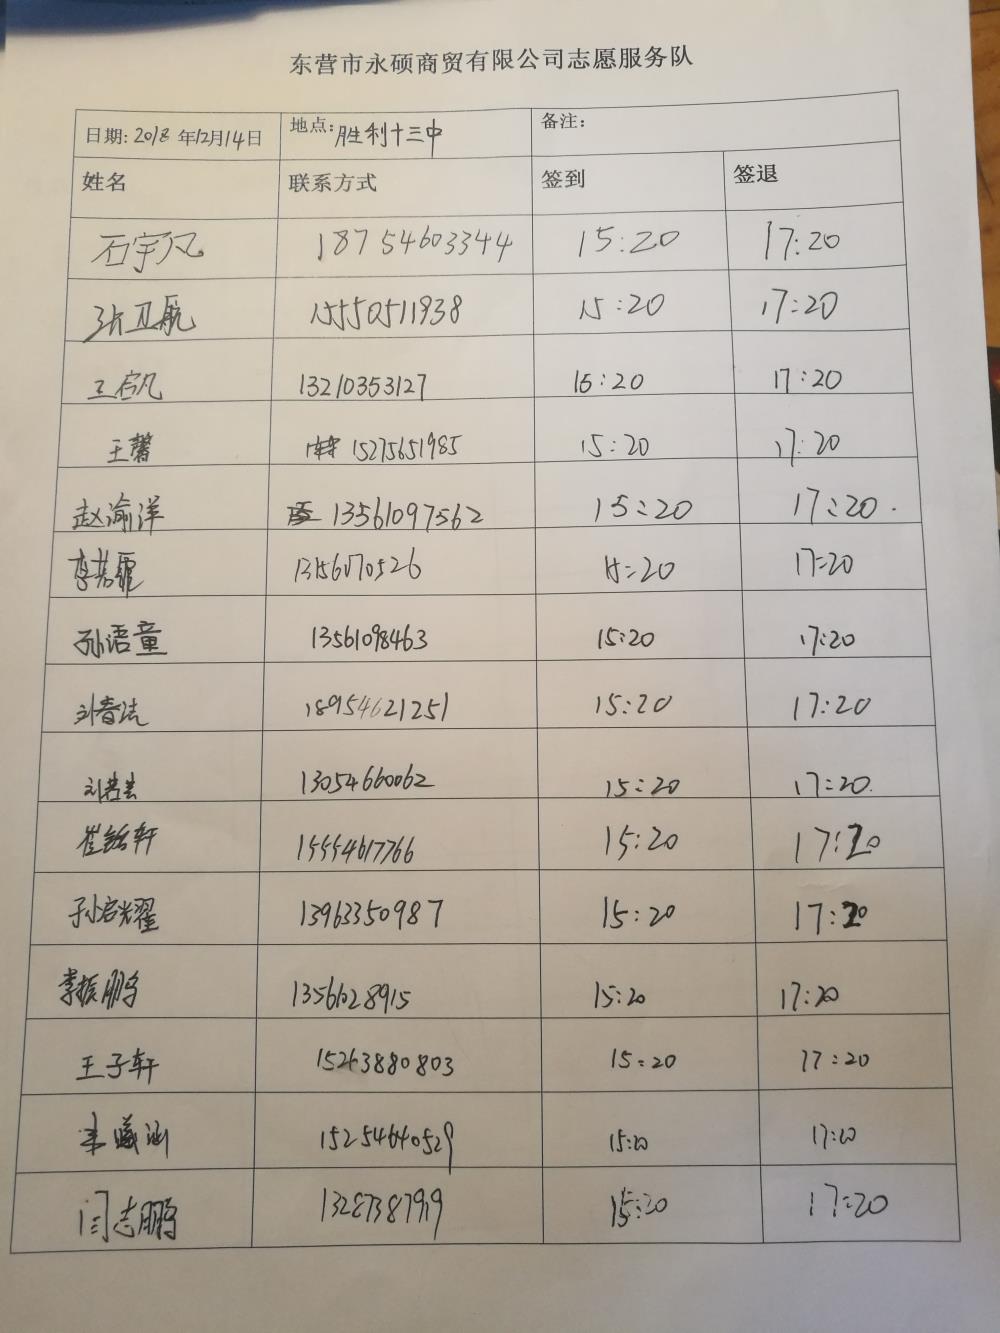 东营市永硕商贸有限公司志愿服务队
日期: 2018 年12月14日 地点: 胜利十三中 备注:
姓名 联系方式 签到 签退
石宇凡 18754603344 15:20 17:20
张卫航 15550511938 15:20 17:20
王启凡 13210353127 15:20 17:20
王馨 15275651985 15:20 17:20
赵渝洋 13561097562 15:20 17:20.
15:20 17:20
孙语童 13561098463 15:20 17:20
刘春法 18954621251 15:20 17:20
13054660062 15:20 17:20.
15554617766 15:20 17:20
孙启耀 13963350987 15:20 17:20
李振鹏 13561028915 15:20 17:20
王子轩 15263880803 15:20 17:20
15254640529 15:20 17:20
闫志鹏 13287387919 15:20 17:20